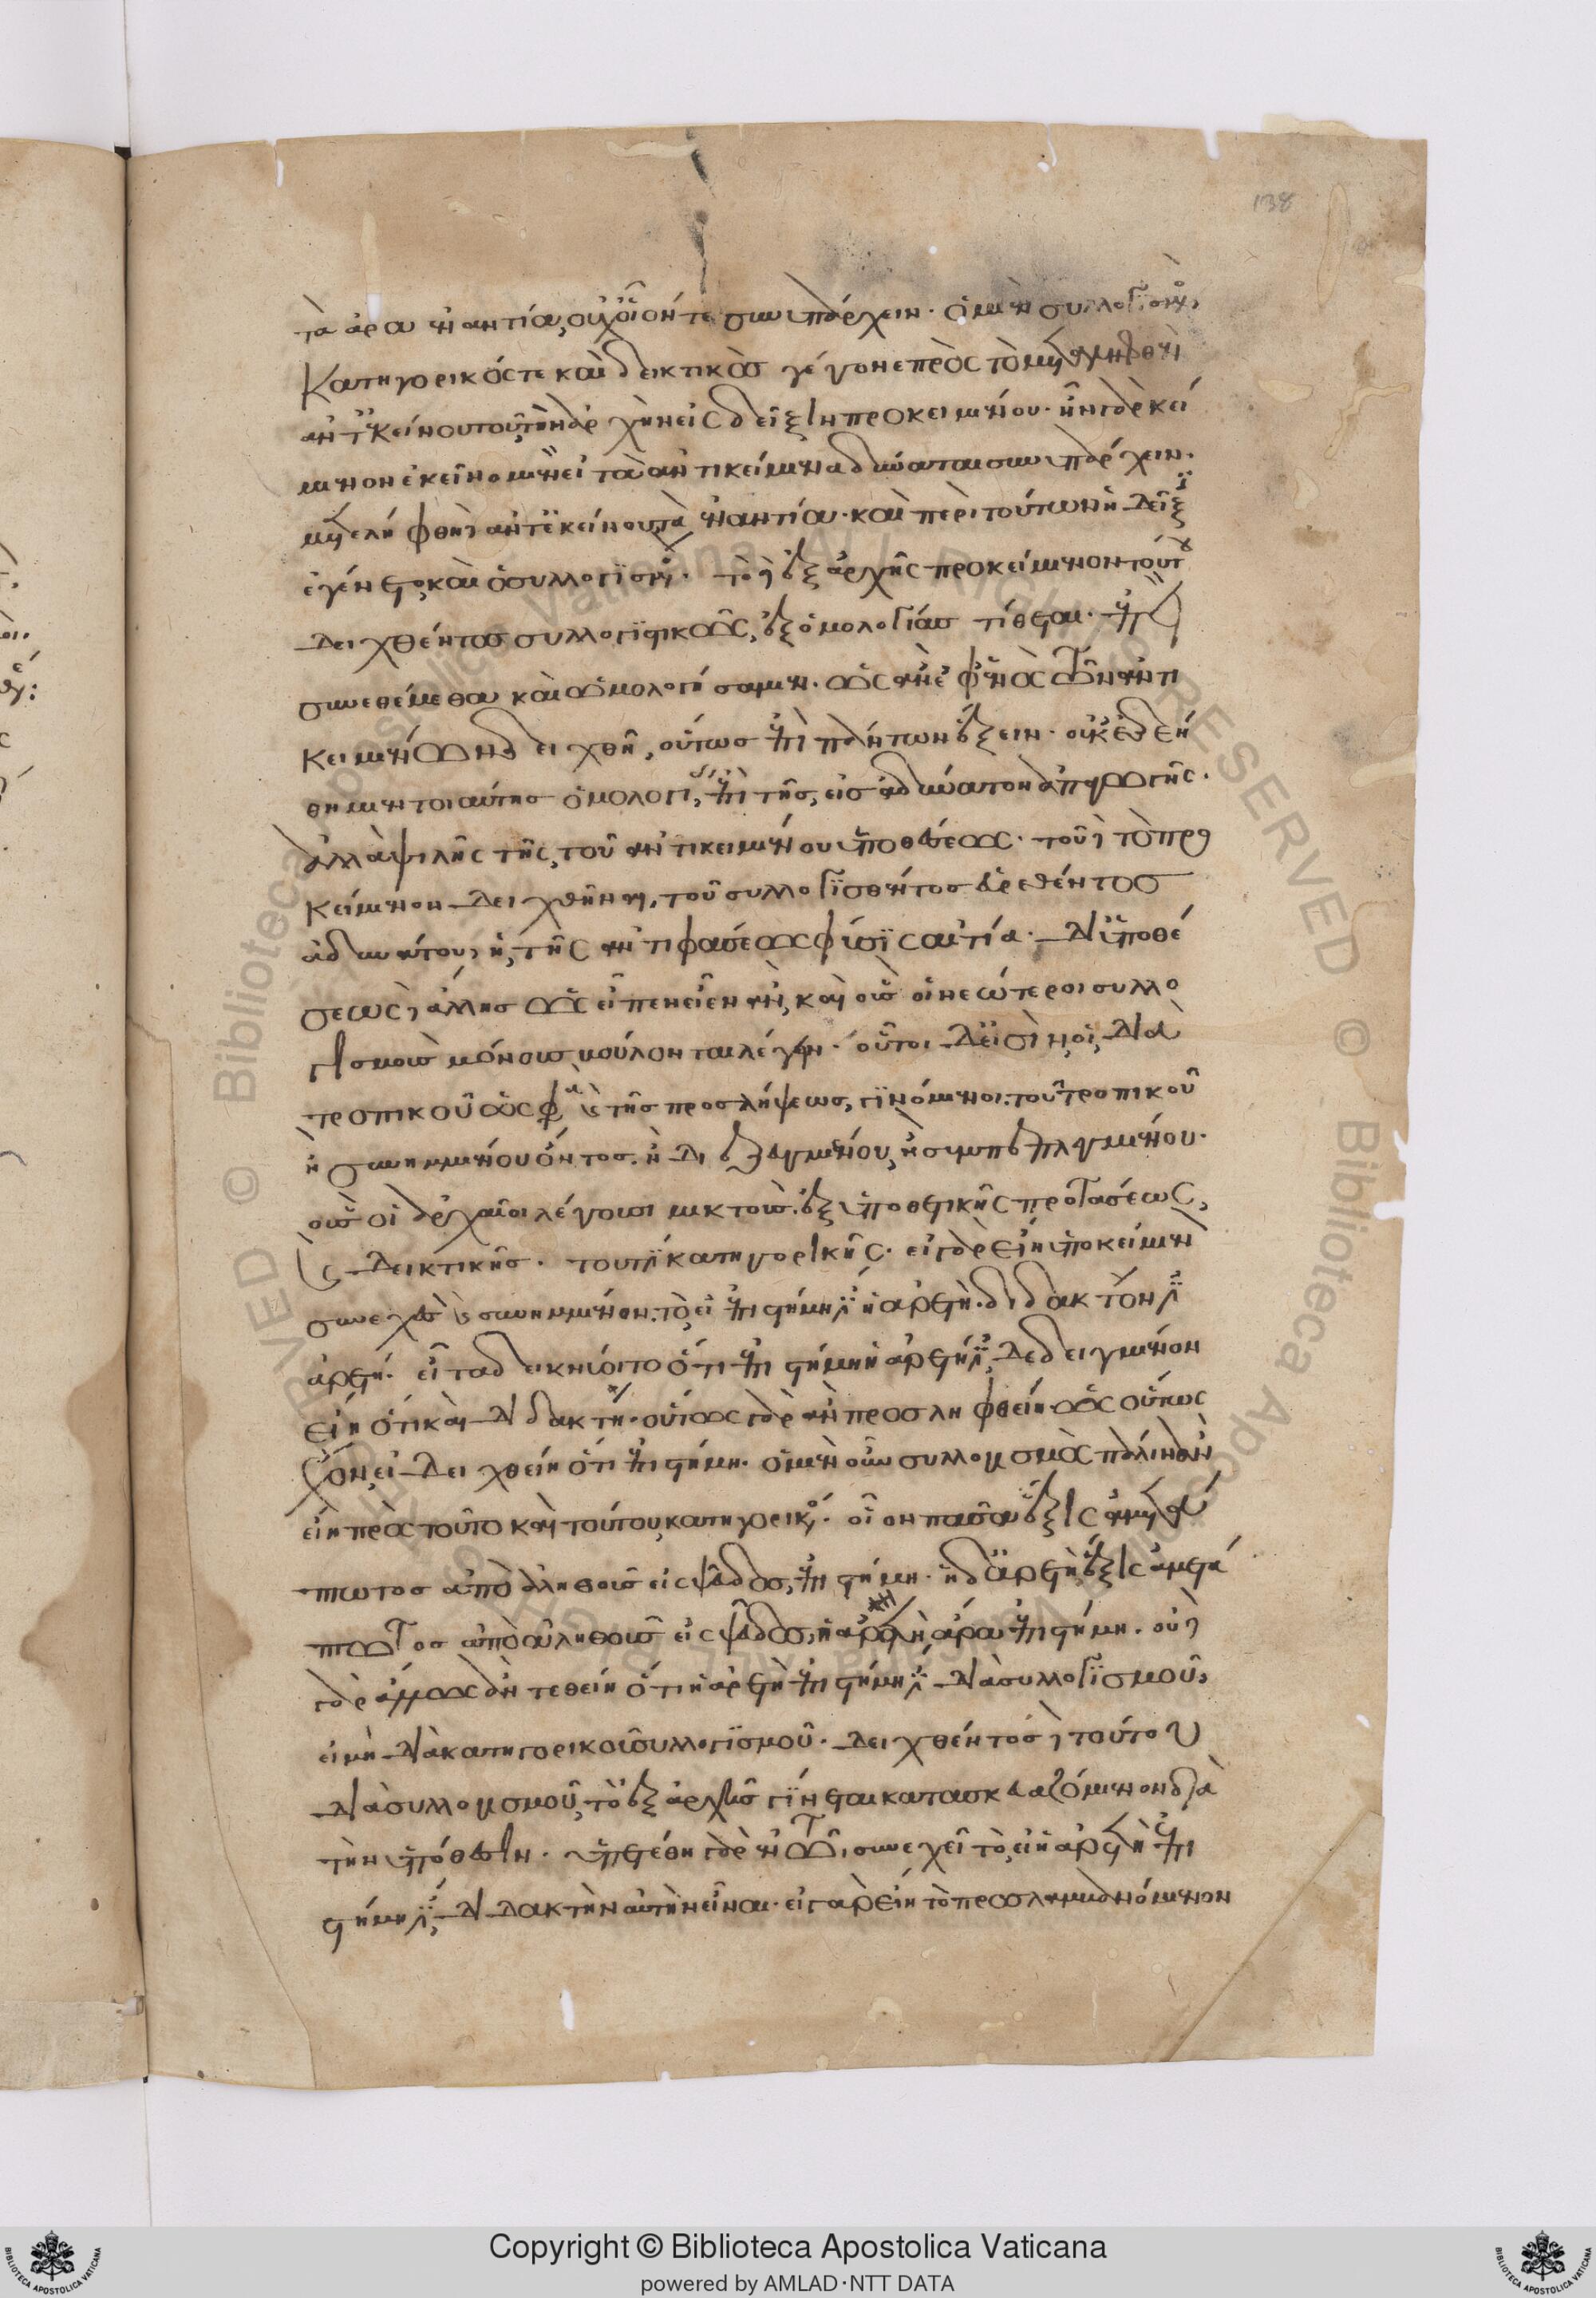 138
τὰ ἄρα ἐναντία, οὐχ οἷόν τε συνυπάρχειν· ὁ μὲν συλλογισμὸς,
κατηγορικός τε καὶ δεικτικὸς γέγονε πρὸς τὸ μεταληφθὲν
ἀντ' ἐκείνου τοῦ τὴν ἀρχὴν εἰς δεῖξιν προκειμένου· ἦν γὰρ κεί
μενον ἐκεῖνο μὲν εἰ τὰ ἀντικείμενα δύναται συνυπάρχειν·
μετελήφθη δὲ ἀντ' ἐκείνου τὰ ἐναντία· καὶ περὶ τούτων ἡ δεῖξις
ἐγένετο, καὶ ὁ συλλογισμός· τὸ δὲ ἐξ ἀρχῆς προκείμενον τούτου
δειχθέντος συλλογιστικῶς, ἐξ ὁμολογίας τίθεται· ἐπεὶ
συνεθέμεθα καὶ ὡμολογήσαμεν· ὡς ἂν ἐφ' ἑνὸς τῶν ἀντι
κειμένων δειχθῇ, οὕτως ἐπὶ πάντων ἕξειν· οὐκ ἐδεή
θημεν τοιαύτης ὁμολογίας, ἐπὶ τῆς εἰς ἀδύνατον ἀπαγωγῆς·
ἀλλὰ ψιλῆς τῆς τοῦ ἀντικειμένου ὑποθέσεως· τοῦ δὲ τὸ προ
κείμενον δειχθῆναι, τοῦ συλλογισθέντος ἀναιρεθέντος
ἀδυνάτου, ἡ τῆς ἀντιφάσεως φύσις αἰτία· δι' ὑποθέ
σεως δὲ ἄλλης ὡς εἶπεν εἶεν ἂν, καὶ οὓς οἱ νεώτεροι συλλο
γισμοὺς μόνους βούλονται λέγειν· οὗτοι δ' εἰσὶν, οἱ διὰ
τροπικοῦ ὥς φασι καὶ τῆς προσλήψεως, γινόμενοι· τοῦ τροπικοῦ
ἢ συνημμένου ὄντος· ἢ διεζευγμένου, ἢ συμπεπλεγμένου·
οὓς οἱ ἀρχαῖοι λέγουσι μικτοὺς ἐξ ὑποθετικῆς προτάσεως,
καὶ δεικτικῆς· τουτέστι κατηγορικῆς· εἰ γὰρ εἴη ὑποκείμενον
συνεχὲς καὶ συνημμένον· τὸ, εἰ ἐπιστήμη ἐστὶν ἡ ἀρετὴ· διδακτόν ἐστιν
ἀρετή· εἶτα δεικνύοιτο ὅτι ἐπιστήμη ἡ ἀρετή ἐστι, δεδειγμένον
εἴη ὅτι καὶ διδακτή· οὕτως γὰρ ἂν προσληφθείη· ὡς οὕτως
ἔχον, εἰ δειχθείη ὅτι ἐπιστήμη· ὁ μὲν οὖν συλλογισμὸς πάλιν ἂν
εἴη πρὸς τοῦτο καὶ τούτου κατηγορικός· οἷον πᾶσα ἕξις ἀμετά
πτωτος ἀπὸ ἀληθοῦς εἰς ψεῦδος, ἐπιστήμη· ἡ δ' ἀρετὴ ἕξις ἀμετά
πτωτος ἀπὸ ἀληθοῦς εἰς ψεῦδος, ἡ ἀρετὴ ἄρα ἐπιστήμη· οὐδὲ
γὰρ ἄλλως ἂν τεθείη ὅτι ἡ ἀρετὴ ἐπιστήμη ἐστὶ διὰ συλλογισμοῦ,
εἰ μὴ διὰ κατηγορικοῦ συλλογισμοῦ· δειχθέντος δὲ τούτου
διὰ συλλογισμοῦ, τὸ ἐξ ἀρχῆς γίνεται κατασκευαζόμενον διὰ
τὴν ὑπόθεσιν· ὑπετέθη γὰρ ἐν τῷ συνεχεῖ τὸ, εἰ ἡ ἀρετὴ ἐπι
στήμη ἐστὶ, διδακτὴν αὐτὴν εἶναι· εἰ γὰρ εἴη τὸ προσλαμβανόμενον
Copyright © Biblioteca Apostolica Vaticana
powered by AMLAD·NTT DATA